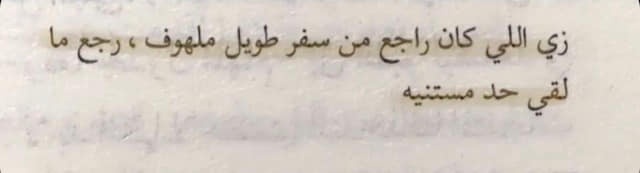 زي اللي كان راجع من سفر طويل ملهوف ، رجع ما
لقي حد مستنيه